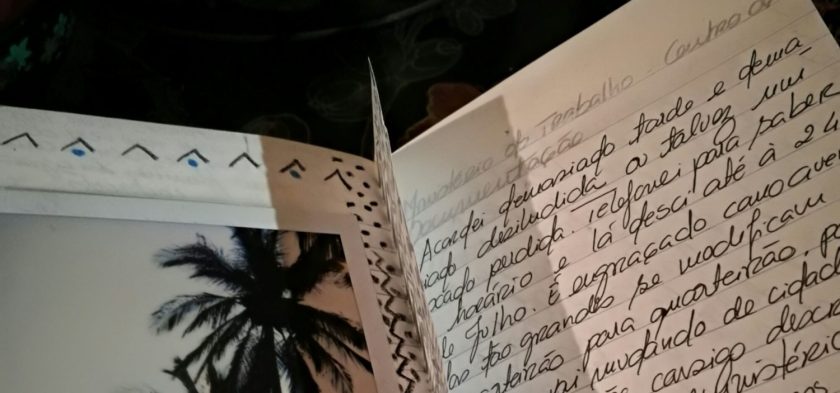 Ministério do Trabalho - Centro de
Documentação
Acordei demasiado tarde e dema
iado desiludida ou talvez um
ocado perdida. Telefonei para saber
horário e lá desci até à 24
de Julho. É engraçado como aven
tão grandes se modificam
quarteirão para quarteirão.
mudando de cidad
consigo descre